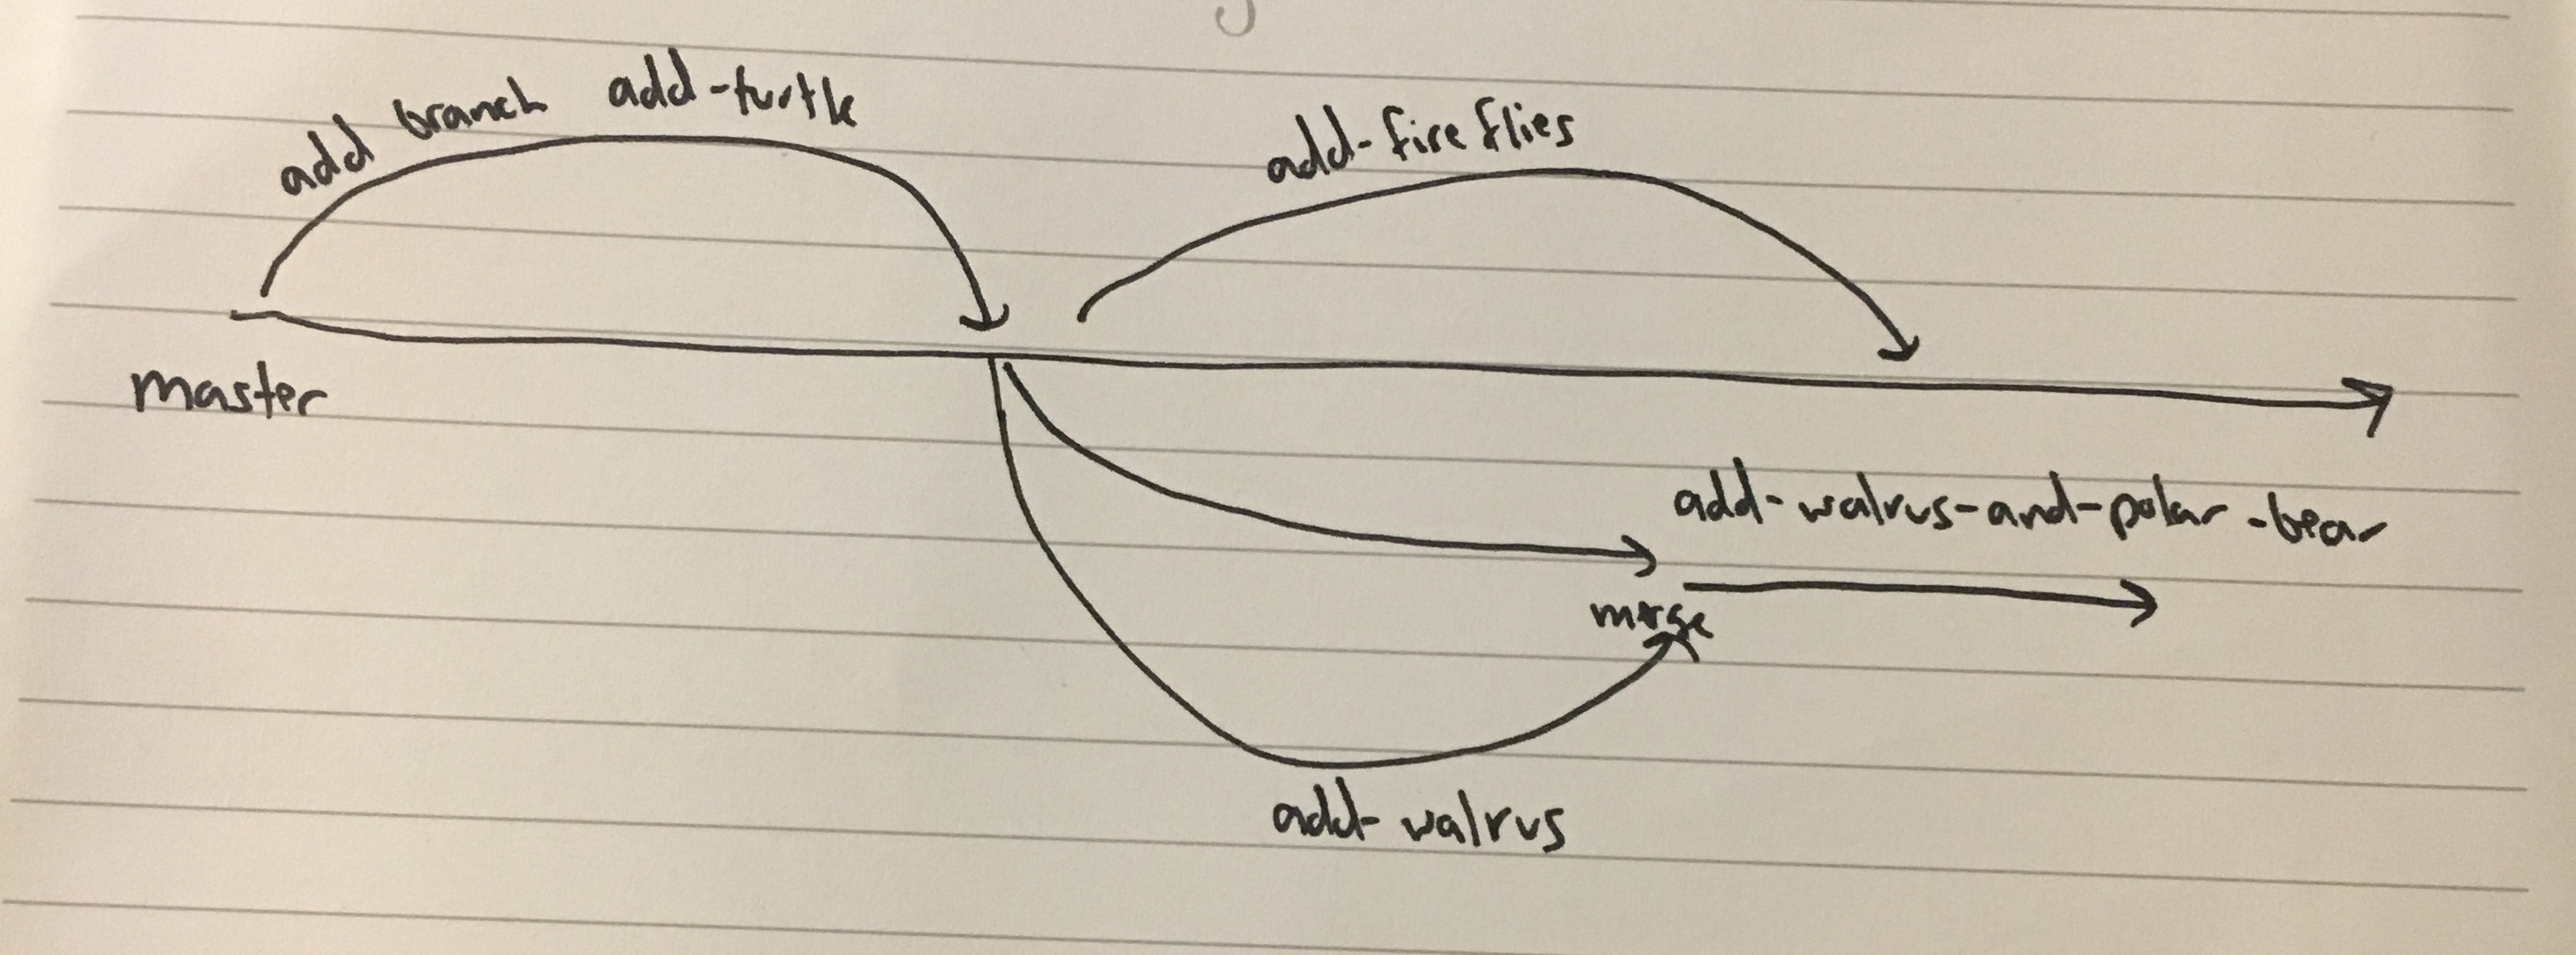 add branch add-turtle
add-fireflies
master
add-walrus-and-polar-bear
merge
add-walrus